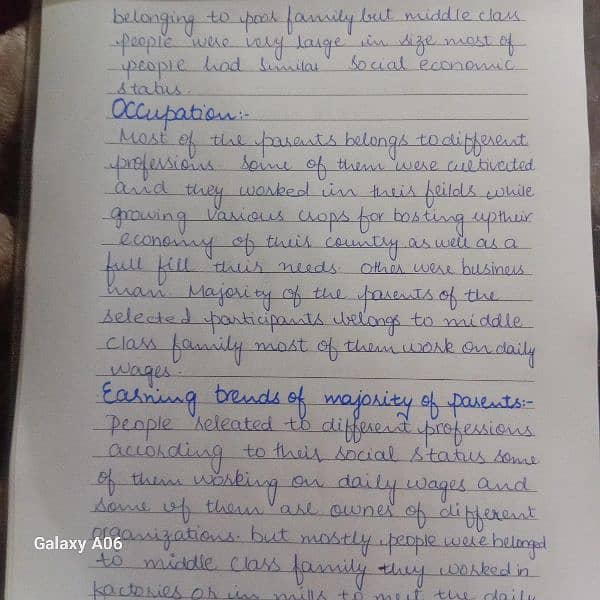 belonging to poor family but middle class
people were very large in size most of
people had similar social economic
status.
Occupation:-
Most of the parents belongs to different
professions. Some of them were cultivated
and they worked in their feilds while
growing various crops for bosting up their
economy of their country as well as a
full fill their needs. Other were business
man. Majority of the parents of the
selected participants belongs to middle
class family most of them work on daily
wages.
Earning trends of majority of parents:-
People releated to different professions
according to their social status some
of them working on daily wages and
some of them are owner of different
organizations. but mostly people were belonged
to middle class family they worked in
factories or in mills to meet the daily
Galaxy A06